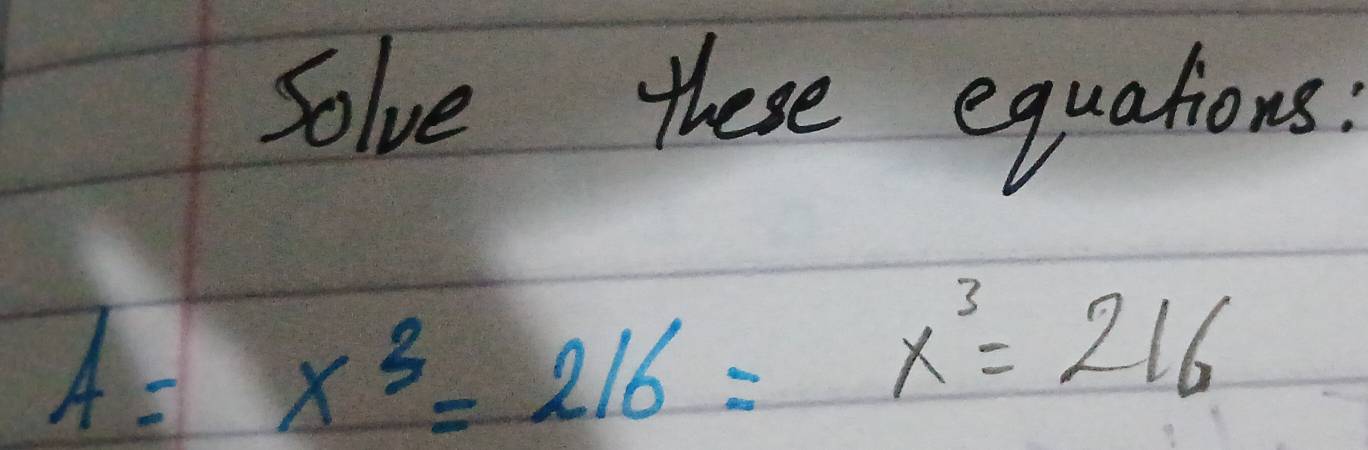 Solve these equations:
A = x³ = 216 = x³ = 216